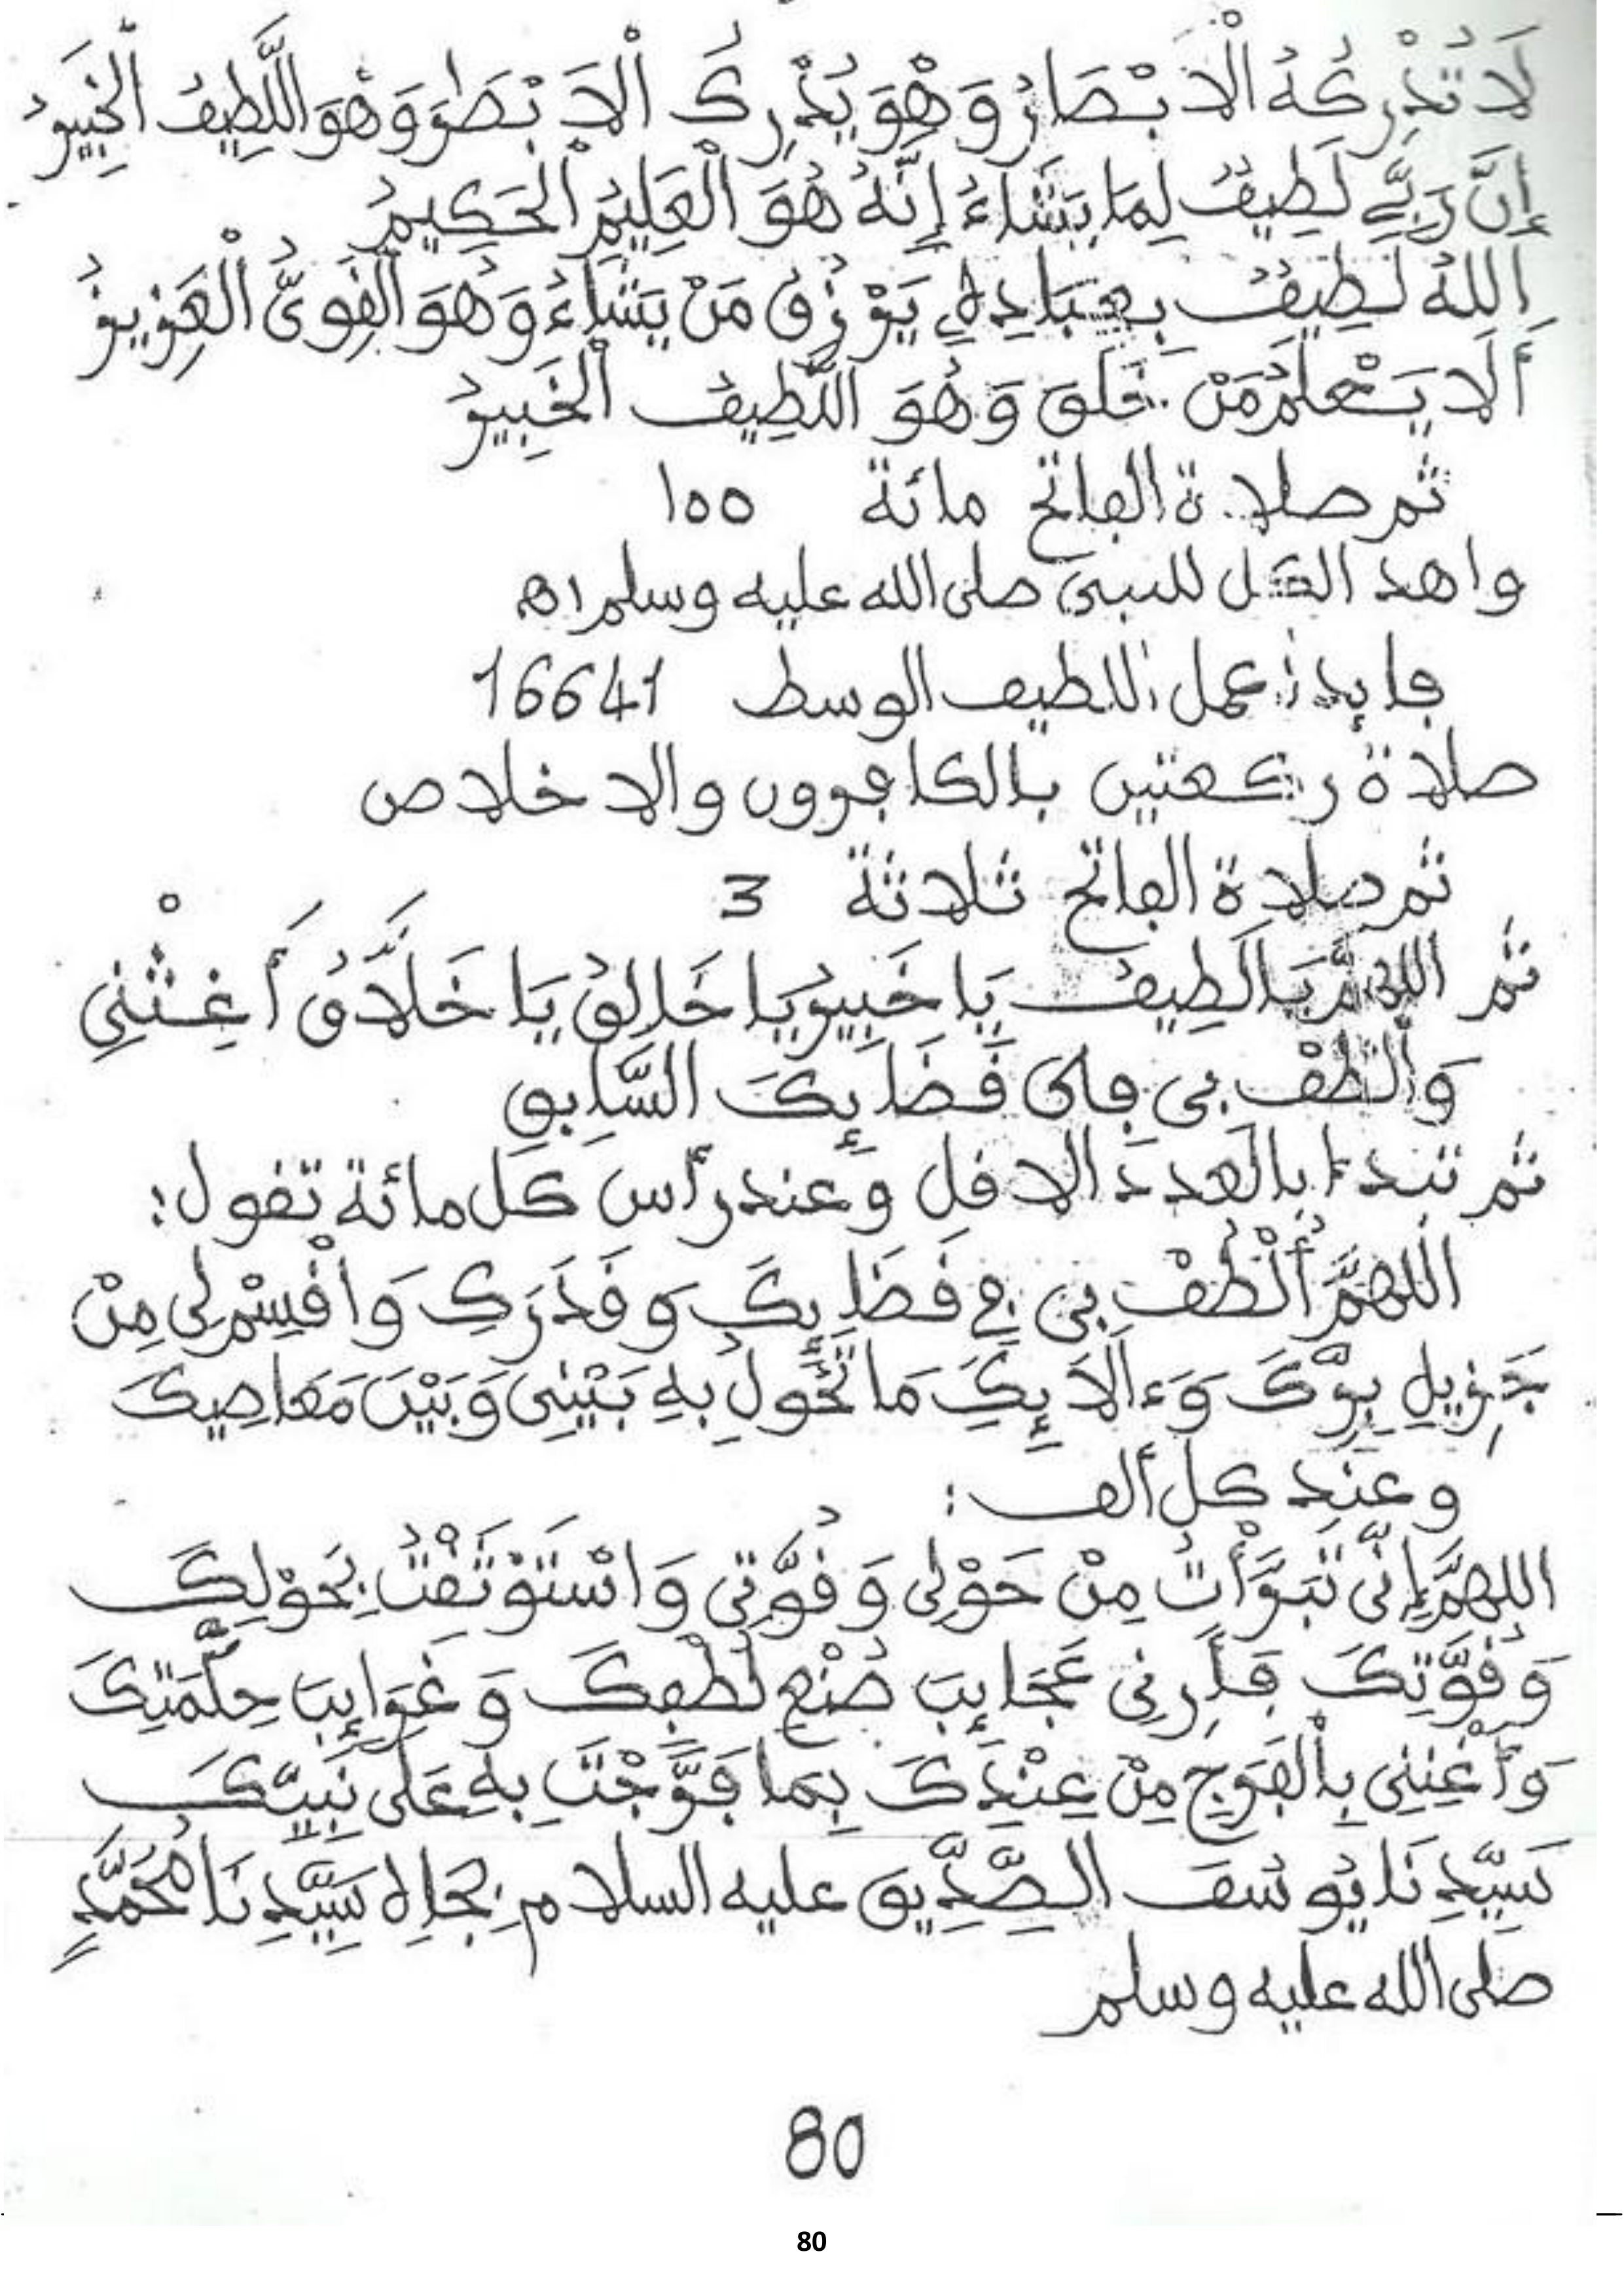 لَا تُدْرِكُهُ الْاَبْصَارُ وَهْوَ يُدْرِكُ الْاَبْصَٰرَ وَهْوَ اللَّطِيفُ الْخَبِيرُ
إِنَّ رَبِّے لَطِيفٌ لِمَا يَشَاءُ إِنَّهُ هُوَ الْعَلِيمُ الْحَكِيمُ
اَللهُ لَطِيفٌ بِعِبَادِهِ يَرْزُقُ مَنْ يَشَاءُ وَهُوَ الْقَوِىُّ الْعَزِيزُ
أَلَا يَعْلَمُ مَنْ خَلَقَ وَهُوَ اللَّطِيفُ الْخَبِيرُ
ثم صلاة الفاتح مائة 100
واهد الكل للنبي صلى الله عليه وسلم اهـ
فايدة عمل اللطيف الوسط 16641
صلاة ركعتين بالكافرون والاخلاص
ثم صلاة الفاتح ثلاثة 3
ثم اللهُمَّ يَا لَطِيفُ يَا خَبِيرُ يَا خَالِقُ يَا خَلَّاقُ أَغِثْنِي
وَأُلْطُفْ بِي فِى قَضَايِٕكَ السَّابِقِ
ثم تبدء بالعدد الاقل وعند رأس كل مائة تقول:
اللهُمَّ أُلْطُفْ بِي فِي قَضَايِٕكَ وَقَدَرِكَ وَاقْسِمْ لِى مِنْ
جَزِيلِ بِرِّكَ وَءَالَايِٕكَ مَا تَحُولُ بِهِ بَيْنِى وَبَيْنَ مَعَاصِيكَ
وعند كل ألف:
اللهُمَّ إِنِّى تَبَرَّأْتُ مِنْ حَوْلِى وَقُوَّتِي وَاسْتَوْثَقْتُ بِحَوْلِكَ
وَقُوَّتِكَ فَأَرِنِي عَجَايِٕبَ صُنْعِ لُطْفِكَ وَغَرَايِٕبَ حِكْمَتِكَ
وَأَغِثْنِي بِالْفَرَجِ مِنْ عِنْدِكَ بِمَا فَرَّجْتَ بِهِ عَلَى نَبِيِّكَ
سَيِّدِنَا يُوسُفَ الصِّدِّيقِ عليه السلام بِجَاهِ سَيِّدِنَا مُحَمَّدٍ
صلى الله عليه وسلم
80
80